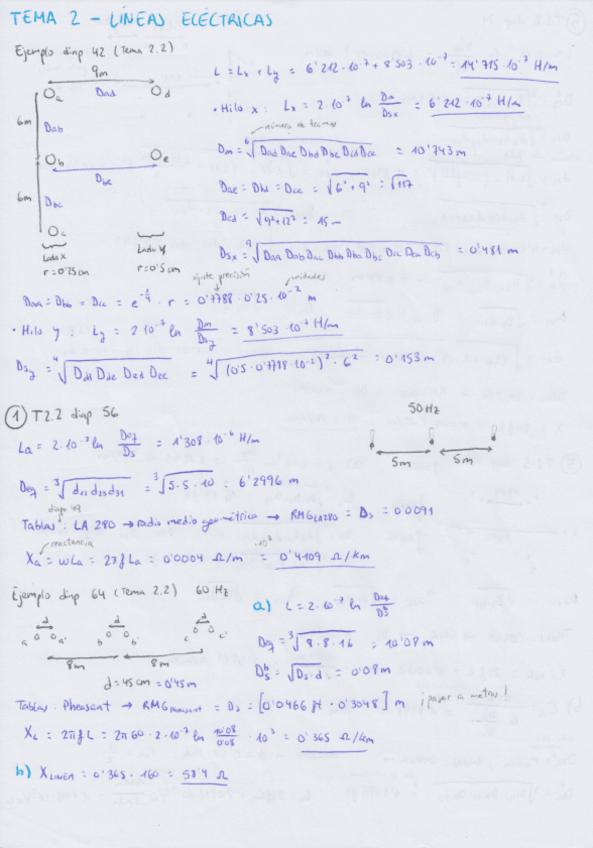 TEMA 2 - LÍNEAS ELÉCTRICAS
Ejemplo diap 42 (Tema 2.2)
9m
a Dad d
6m Dab
b Dbe e
6m Dbc
c
Lado X
r=0'25cm
Lado Y
r=0'5cm
L = Lx + Ly = 6'212·10⁻⁷ + 8'503·10⁻⁷ = 14'715·10⁻⁷ H/m
• Hilo x: Lx = 2·10⁻⁷ ln Dm/Dsx = 6'212·10⁻⁷ H/m
número de términos
Dm = ⁶√(Dad Dae Dbd Dbe Dcd Dce) = 10'743 m
Dae = Dbd = Dce = √(6²+9²) = √117
Dcd = √(9²+12²) = 15 m
Dsx = ⁹√(Daa Dab Dac Dba Dbb Dbc Dcc Dca Dcb) = 0'481 m
ajuste precisión
unidades
Daa = Dbb = Dcc = e^-1/4 · r = 0'7788·0'25·10⁻² m
• Hilo y: Ly = 2·10⁻⁷ ln Dm/Dsy = 8'503·10⁻⁷ H/m
Dsy = ⁴√(Ddd Dde Ded Dee) = ⁴√((0'5·0'7788·10⁻²)²·6²) = 0'153 m
① T2.2 diap 56
50Hz
5m 5m
La = 2·10⁻⁷ ln Deq/Ds = 1'308·10⁻⁶ H/m
Deq = ³√(d12 d23 d31) = ³√(5·5·10) = 6'2996 m
diap 49
Tablas: LA 280 → radio medio geométrico → RMG LA280 = Ds = 0'0091
reactancia
Xa = ωLa = 2πf La = 0'0004 Ω/m =·10³= 0'4109 Ω/km
Ejemplo diap 64 (Tema 2.2) 60Hz
d d d
a a' b b' c c'
8m 8m
d = 45 cm = 0'45m
a) L = 2·10⁻⁷ ln Deq/D's
Deq = ³√(8·8·16) = 10'08 m
D's = √(Ds·d) = 0'08m
Tablas: Pheasant → RMG pheasant = Ds = [0'0466 ft · 0'3048] m ¡pasar a metros!
XL = 2πfL = 2π60·2·10⁻⁷ ln 10'08/0'08 · 10³ = 0'365 Ω/km
b) X LÍNEA = 0'365·160 = 58'4 Ω